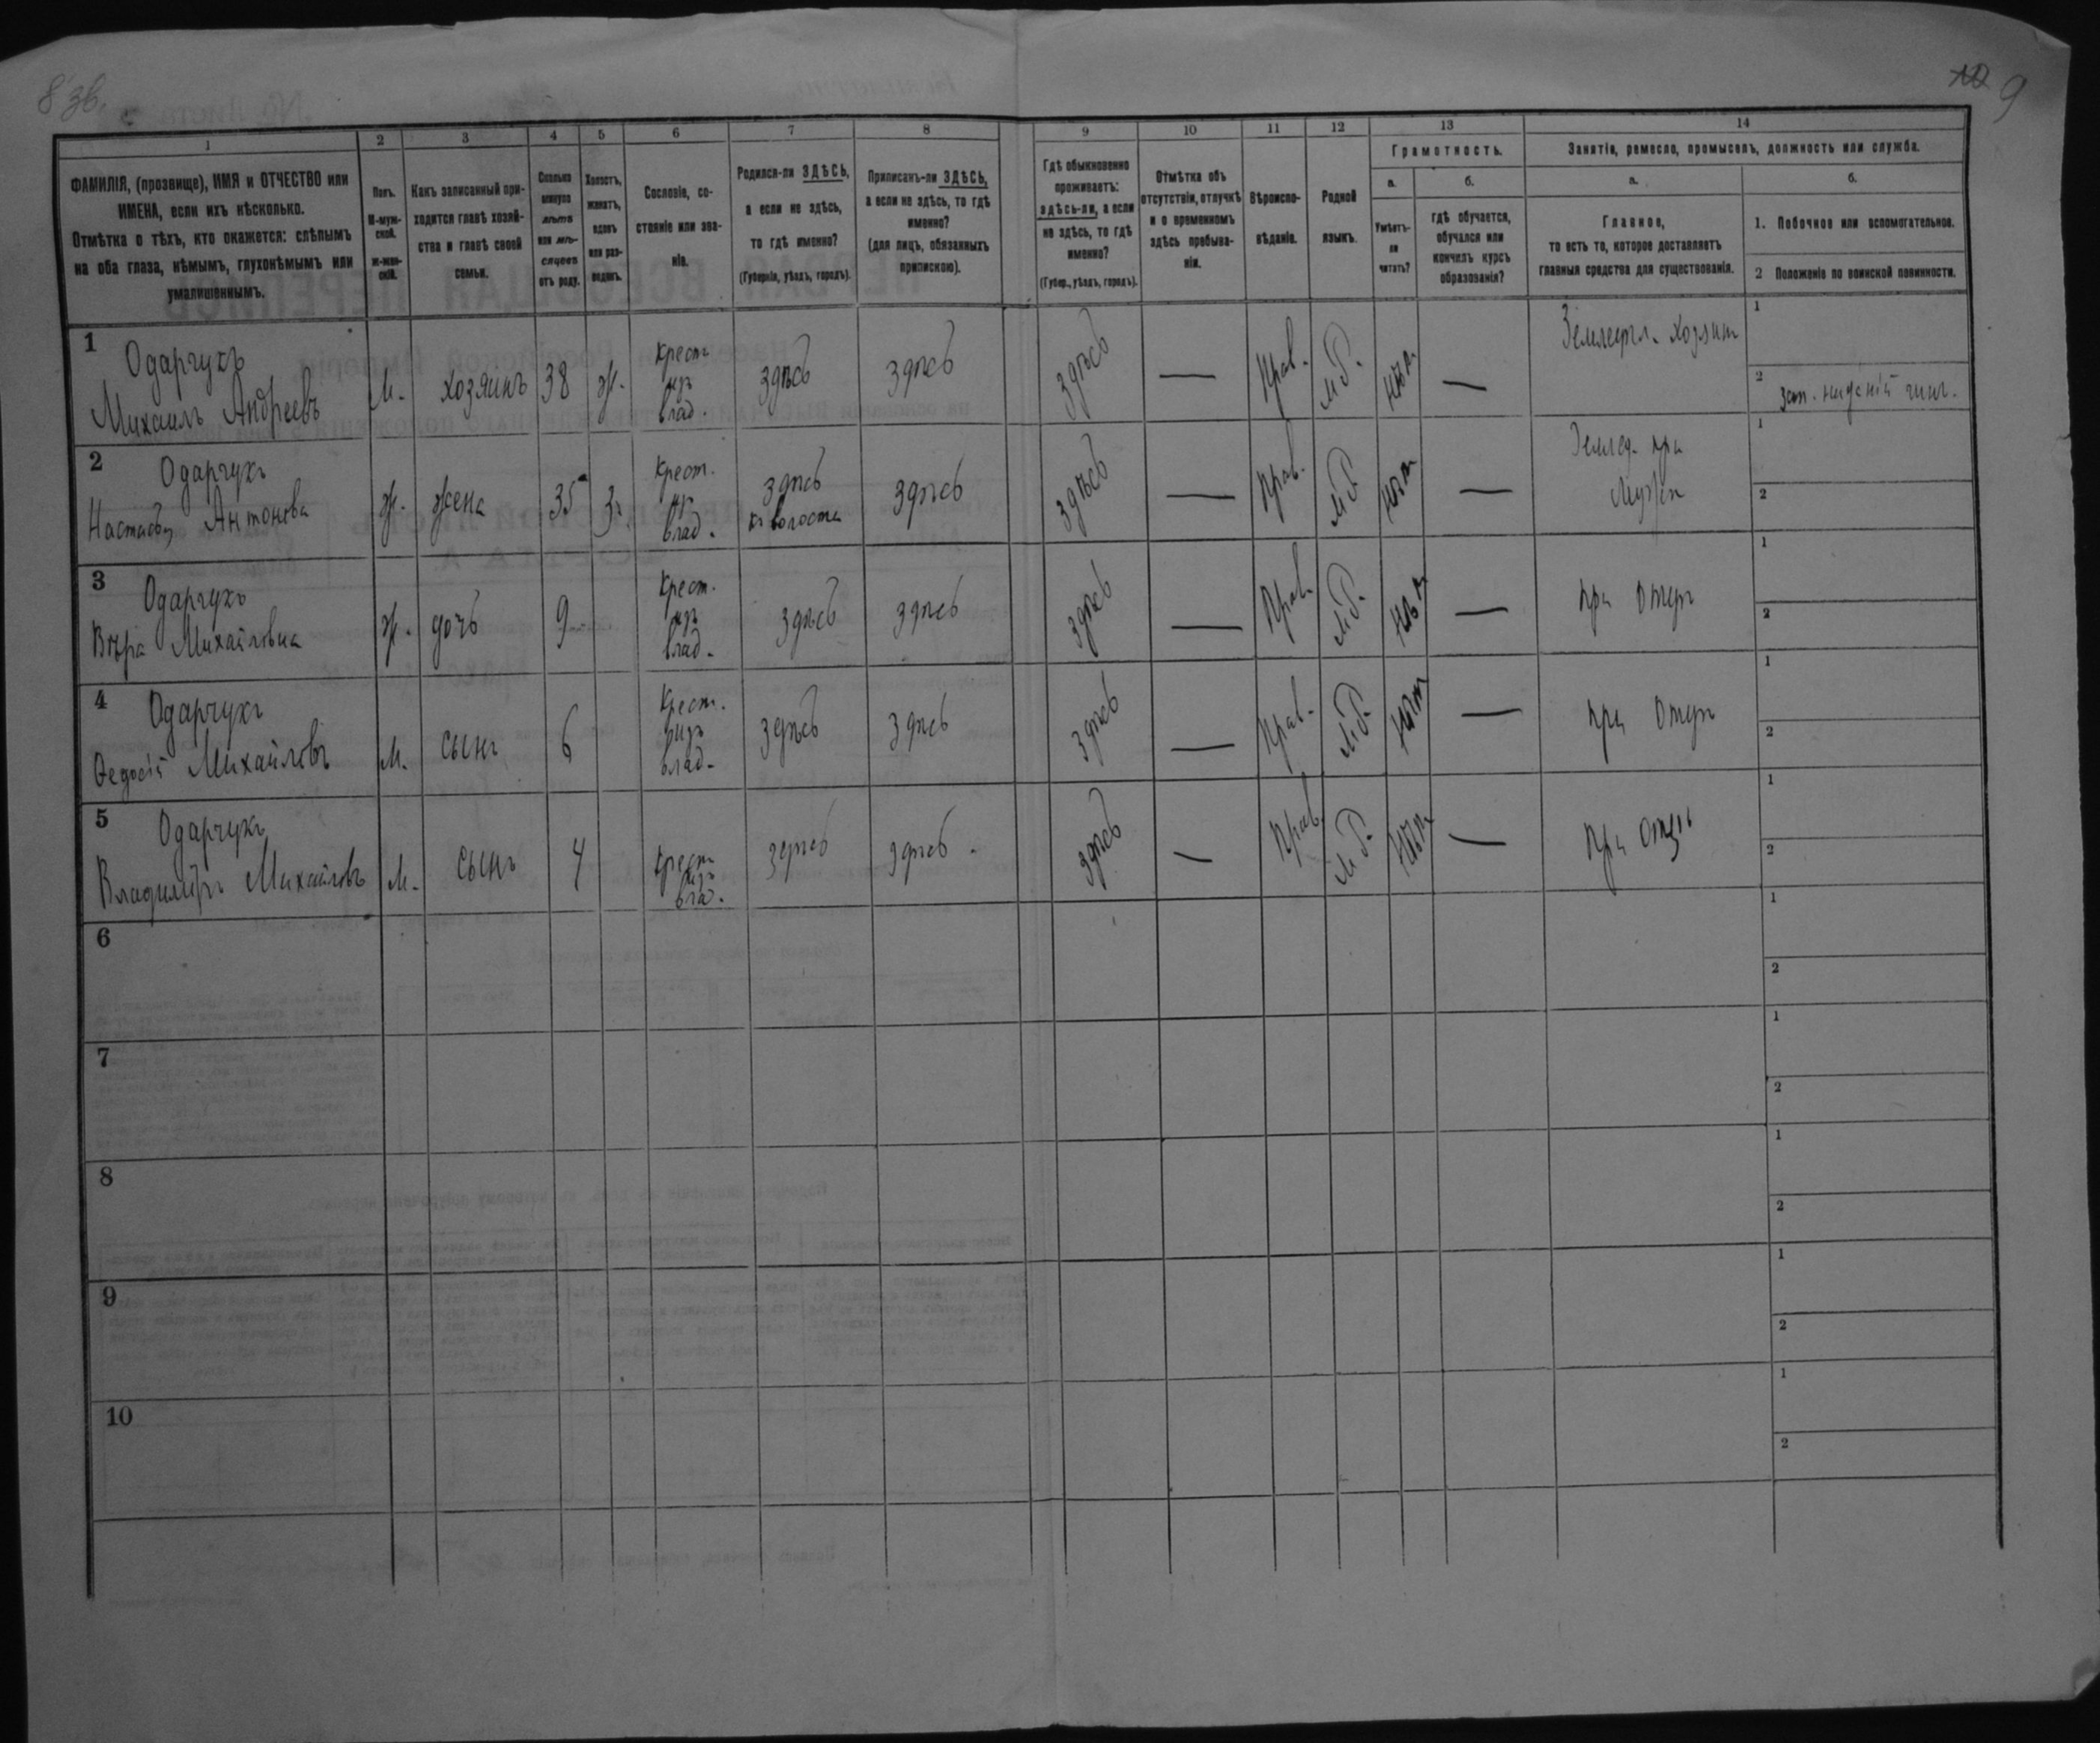 8 зв.
9
1
2
3
4
5
6
7
8
9
10
11
12
13
14
ФАМИЛІЯ, (прозвище), ИМЯ и ОТЧЕСТВО или
ИМЕНА, если ихъ нѣсколько.
Отмѣтка о тѣхъ, кто окажется: слѣпымъ
на оба глаза, нѣмымъ, глухонѣмымъ или
умалишеннымъ.
Полъ.
М-муж-
ской.
Ж-жен-
скій.
Какъ записанный при-
ходится главѣ хозяй-
ства и главѣ своей
семьи.
Сколько
минуло
лѣтъ
или мѣ-
сяцевъ
отъ роду.
Холостъ,
женатъ,
вдовъ
или раз-
веденъ.
Сословіе, со-
стояніе или зва-
ніе.
Родился-ли ЗДѢСЬ,
а если не здѣсь,
то гдѣ именно?
(Губернія, уѣздъ, городъ).
Приписанъ-ли ЗДѢСЬ,
а если не здѣсь, то гдѣ
именно?
(для лицъ, обязанныхъ
припискою).
Гдѣ обыкновенно
проживаетъ:
здѣсь-ли, а если
не здѣсь, то гдѣ
именно?
(Губер., уѣздъ, городъ).
Отмѣтка объ
отсутствіи, отлучкѣ
и о временномъ
здѣсь пребыва-
ніи.
Вѣроиспо-
вѣданіе.
Родной
языкъ.
Грамотность.
а.
Умѣетъ-
ли
читать?
б.
гдѣ обучается,
обучался или
кончилъ курсъ
образованія?
Занятія, ремесло, промыселъ, должность или служба.
а.
Главное,
то есть то, которое доставляетъ
главныя средства для существованія.
б.
1. Побочное или вспомогательное.
2 Положеніе по воинской повинности.
1 Одарчукъ
Михаилъ Андреевъ
М. хозяинъ 38 ж.
Крест.
изъ
влад.
здѣсь здѣсь здѣсь — Прав. М.Р. нѣт —
Землед. хозяин
1
2 зап. нижній чин.
2 Одарчукъ
Настасья Антонова
ж. жена 35 з.
Крест.
из
влад.
здѣсь
волости
здѣсь здѣсь — Прав. М.Р. нѣт —
Землед. при
мужѣ
1
2
3 Одарчукъ
Вѣра Михайловна
ж. дочь 9
Крест.
изъ
влад.
здѣсь здѣсь здѣсь — Прав. М.Р. нѣт — при отцѣ
1
2
4 Одарчукъ
Ѳедосій Михайловъ
М. сынъ 6
Крест.
изъ
влад.
здѣсь здѣсь здѣсь — Прав. М.Р. нѣт — при отцѣ
1
2
5 Одарчукъ
Владиміръ Михайловъ
М. сынъ 4
Крест.
изъ
влад.
здѣсь здѣсь. здѣсь — Прав. М.Р. нѣт — при отцѣ
1
2
6
1
2
7
1
2
8
1
2
9
1
2
10
1
2